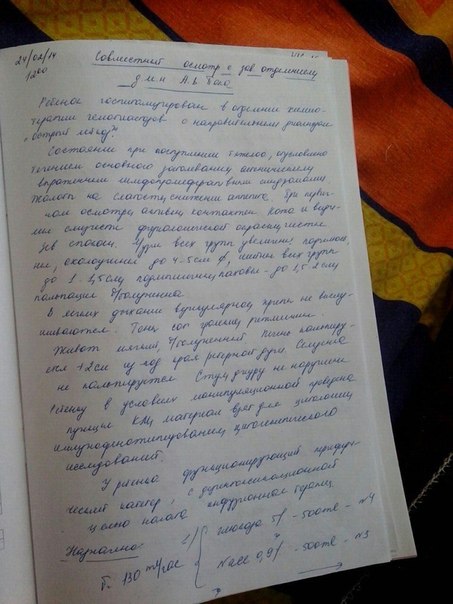 24/02/14
12 00
Совместный осмотр с зав отделением
д.м.н А.В
Ребенок госпитализирован в отделение химио-
терапии гемобластозов с направительным диагнозом
"острый лейкоз".
Состояние при поступлении тяжелое, обусловлено
течением основного заболевания, анемическим,
выраженным лимфопролиферативным синдромами.
Жалобы на слабость, снижение аппетита. При первич-
ном осмотре активен, контактен. Кожа и види-
мые слизистые физиологической окраски, чистые
Зев спокоен. всех групп увеличены: подчелюст-
ные, околоушные до 4-5см ф, шейные всех групп
до 1-1,5см, подмышечные, паховые - до 1,5-2см
пальпация б/болезненна
В легких дыхание везикулярное, хрипы не выслу-
шиваются. Тоны громкие, ритмичные.
Живот мягкий, б/болезненный. Печень пальпиру-
ется +2см из-под края реберной дуги. Селезенка
не пальпируется. Стул, диурез не нарушены
Ребенку в условиях манипуляционной проведена
пункция КМ, материал взят для цитологич
иммунофенотипирования, цитогенетического
исследований.
У ребенка функционирующий перифери-
ческий катетер, с дезинтоксикационной
целью начата инфузионная терапия
Назначено:
V= 130 мл/час
в/в глюкоза 5% - 500ml - N4
NaCl 0,9% - 500ml - N3